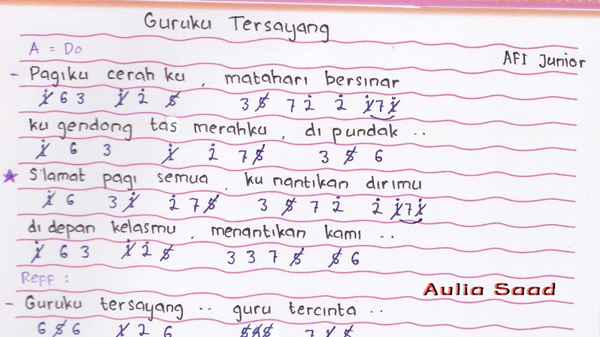 Guruku Tersayang
A = Do
AFI Junior
- Pagiku cerah ku , matahari bersinar
1̸̇ 6 3 1̸̇ 2̇ 5̸ 3 5̸ 7 2̇ 2̇ 1̸̇71̸̇
ku gendong tas merahku , di pundak ..
1̸̇ 6 3 1̸̇ 2̇ 75̸ 3 5̸ 6
★ S'lamat pagi semua , ku nantikan dirimu
1̸̇ 6 31̸̇ 2̇75̸ 3 5̸ 7 2̇ 2̇1̸̇71̸̇
di depan kelasmu , menantikan kami ..
1̸̇ 6 3 1̸̇2̇5̸ 3 3 7 5̸ 5̸ 6
Reff :
Aulia Saad
- Guruku tersayang .. guru tercinta ..
6 5̸ 6 1̸ 2 6